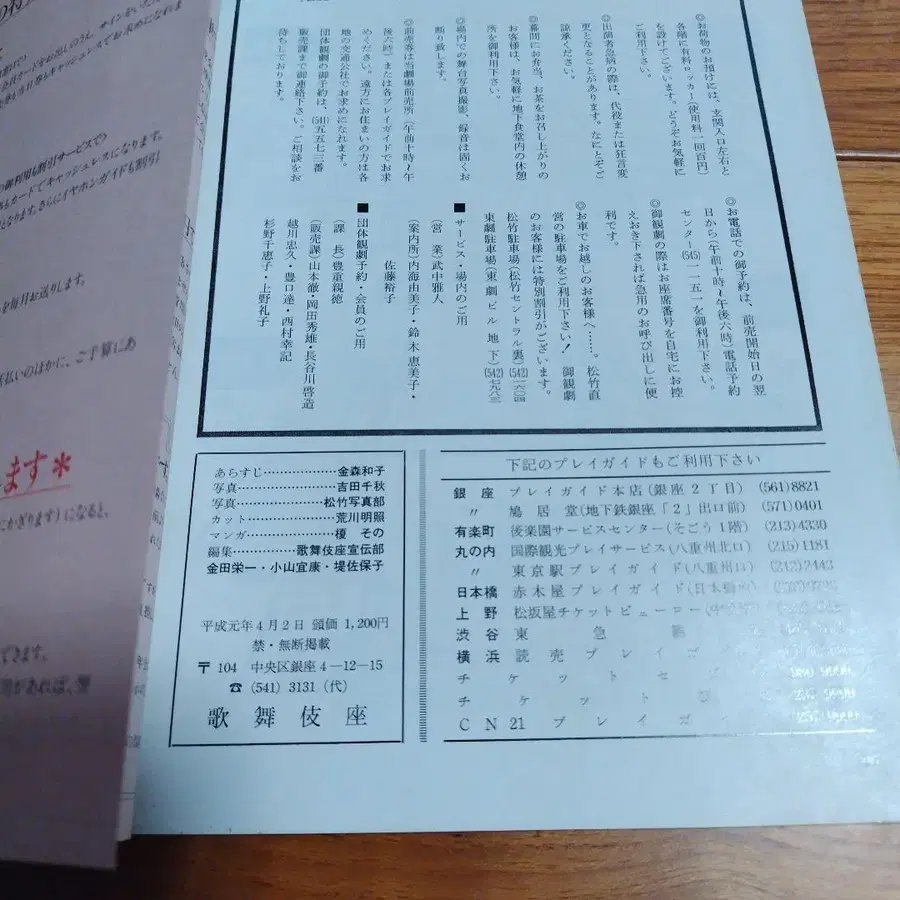 ◎お荷物のお預けには、玄関入口左右と
各階に有料ロッカー(使用料一回百円)
を設けてございます。どうぞお気軽に
ご利用下さい。
◎出演者急病の際は、代役または狂言変
更となることがあります。なにとぞご
諒承ください。
◎幕間にお弁当、お茶をお召し上がりの
お客様は、お気軽に地下食堂内の休憩
所を御利用下さい。
◎場内での舞台写真撮影、録音は固くお
断り致します。
◎前売券は当劇場前売所(午前十時〜午
後六時)または各プレイガイドでお求
めください。遠方にお住まいの方は各
地の交通公社でお求めになれます。
団体観劇の御予約は、(541)五五七三番
販売課まで御連絡下さい。ご相談をお
待ちしております。
◎お電話での御予約は、前売開始日の翌
日から(午前十時〜午後六時)電話予約
センター(545)一一五一を御利用下さい。
◎御観劇の際はお座席番号を自宅にお控
えおき下されば急用のお呼び出しに便
利です。
◎お車でお越しのお客様へ……。松竹直
営の駐車場をご利用下さい! 御観劇
のお客様には特別割引がございます。
松竹駐車場(松竹セントラル裏)(542)一六〇四
東劇駐車場(東劇ビル地下)(542)七九八三
■サービス・場内のご用
(営業)武中雅人
(案内所)内海由美子・鈴木恵美子・
佐藤裕子
■団体観劇予約・会員のご用
(課長)豊重親徳
(販売課)山本徹・岡田秀雄・長谷川啓造
越川忠久・豊口達・西村幸記
杉野千恵子・上野礼子
あらすじ……………金森和子
写真…………………吉田千秋
写真………………松竹写真部
カット………………荒川明照
マンガ………………榎 その
編集…………歌舞伎座宣伝部
金田栄一・小山宜康・堤佐保子
平成元年4月2日 頒価 1,200円
禁・無断掲載
〒104 中央区銀座4-12-15
☎(541) 3131(代)
歌舞伎座
下記のプレイガイドもご利用下さい
銀座 プレイガイド本店(銀座2丁目) (561)8821
〃 鳩居堂(地下鉄銀座「2」出口前) (571)0401
有楽町 後楽園サービスセンター(そごう1階) (213)4330
丸の内 国際観光プレイサービス(八重州北口) (215)1181
〃 東京駅プレイガイド(八重州口) (212)2443
日本橋 赤木屋プレイガイド
上野 松坂屋チケットビューロー
渋谷 東急
横浜 読売プレイガ
チケットセ
チケット
CN21 プレイガイ
ます*
にかぎります)になると、
を毎月お送りします。
払いのほかに、ご予算にあ
できます。